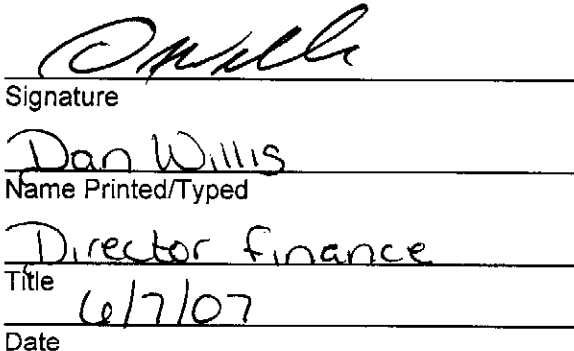 Signature
Dan Willis
Name Printed/Typed
Director finance
Title
6/7/07
Date